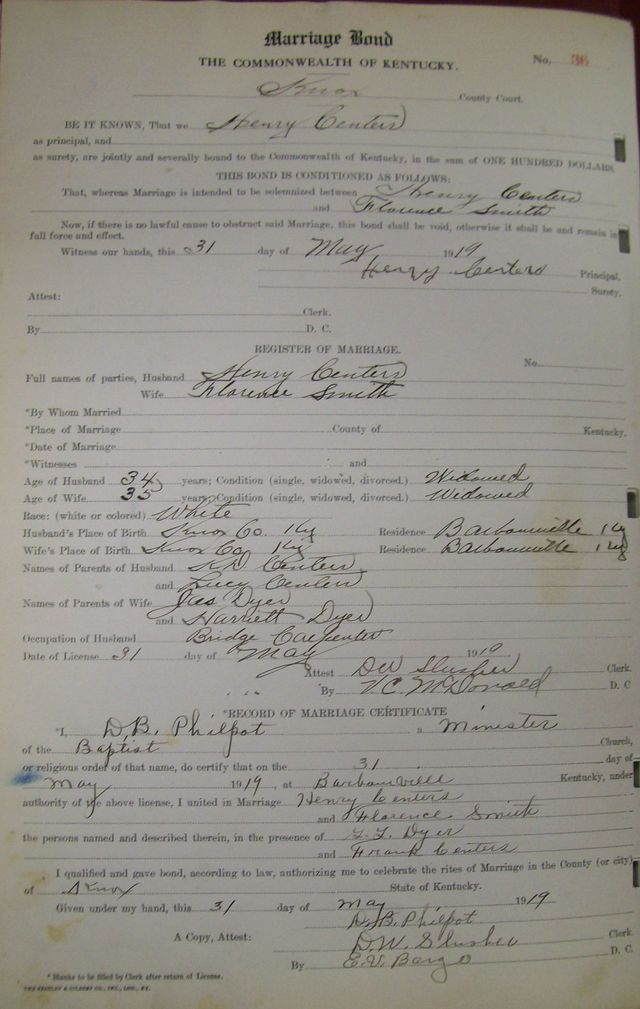 Marriage Bond
THE COMMONWEALTH OF KENTUCKY. No. 36
Knox County Court.
BE IT KNOWN, That we Henry Centers
as principal, and
as surety, are jointly and severally bound to the Commonwealth of Kentucky, in the sum of ONE HUNDRED DOLLARS.
THIS BOND IS CONDITIONED AS FOLLOWS:
That, whereas Marriage is intended to be solemnized between Henry Centers
and Florence Smith
Now, if there is no lawful cause to obstruct said Marriage, this bond shall be void, otherwise it shall be and remain in
full force and effect.
Witness our hands, this 31 day of May 1919
Henry Centers Principal.
Surety.
Attest:
Clerk.
By D. C.
REGISTER OF MARRIAGE.
No.
Full names of parties, Husband Henry Centers
Wife Florence Smith
*By Whom Married
*Place of Marriage County of Kentucky.
*Date of Marriage
*Witnesses and
Age of Husband 34 years; Condition (single, widowed, divorced.) Widowed
Age of Wife 35 years; Condition (single, widowed, divorced.) Widowed
Race: (white or colored) White
Husband's Place of Birth Knox Co. Ky Residence Barbourville Ky
Wife's Place of Birth Knox Co. Ky Residence Barbourville Ky
Names of Parents of Husband Centers
and Lucy Centers
Names of Parents of Wife Jas Dyer
and Harriett Dyer
Occupation of Husband Bridge Carpenter
Date of License 31 day of May 1919
Attest DW Slusher Clerk.
By V.C. McDonald D. C
*RECORD OF MARRIAGE CERTIFICATE
*I, D.B. Philpot a Minister
of the Baptist Church,
or religious order of that name, do certify that on the 31 day of
May 1919, at Barbourville Kentucky, under
authority of the above license, I united in Marriage Henry Centers
and Florence Smith
the persons named and described therein, in the presence of Dyer
and Frank Centers
I qualified and gave bond, according to law, authorizing me to celebrate the rites of Marriage in the County (or city)
of Knox State of Kentucky.
Given under my hand, this 31 day of May 1919
D.B. Philpot
A Copy, Attest: D.W. Slusher Clerk
By E.V. Bargo D. C.
* Blanks to be filled by Clerk after return of License.